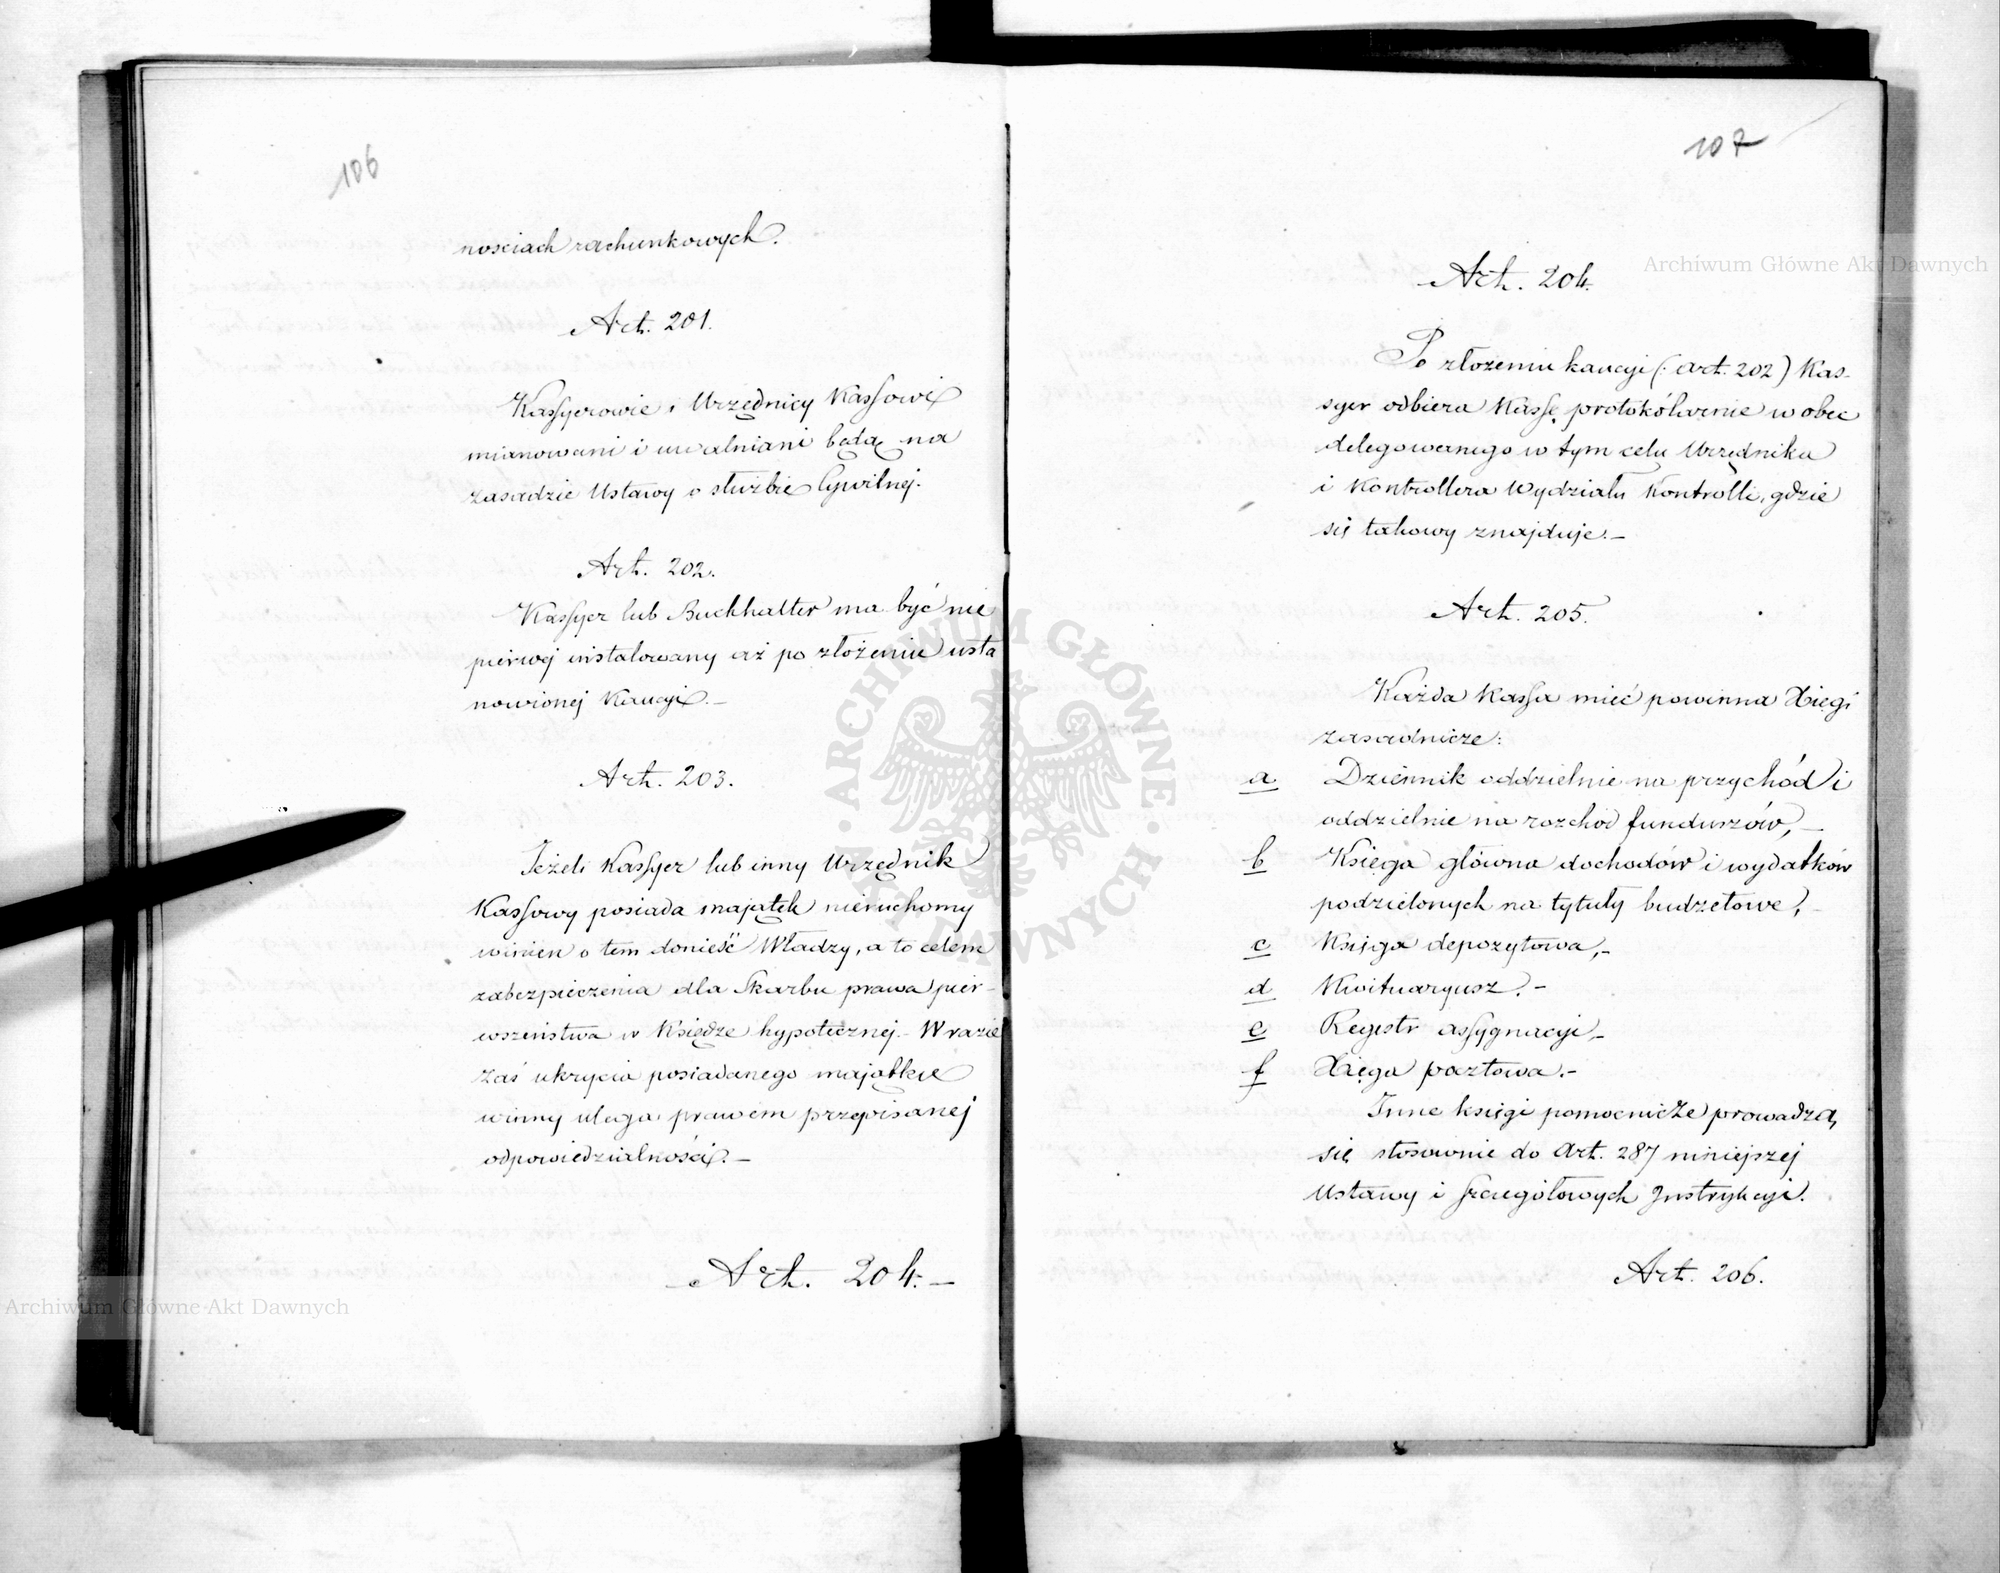 106
nosciach rachunkowych.
Art. 201.
Kassyerowie i Urzędnicy Kassowi
mianowani i uwalniani będą na
zasadzie Ustawy o służbie Cywilnej.
Art. 202.
Kassyer lub Buchhalter ma być nie
pierwej instalowany aż po złożeniu usta
nowionej Kaucyi.—
Art. 203.
Jeżeli Kassyer lub inny Urzędnik
Kassowy posiada majątek nieruchomy
winien o tem donieść Władzy, a to celem
zabezpieczenia dla Skarbu prawa pier-
wszeństwa w Księdze hypotecznej.- W razie
zaś ukrycia posiadanego majątku
winny ulega prawem przepisanej
odpowiedzialności.—
Art. 204.—
107
Art. 204.
Po złożeniu kaucyi (: art. 202) Kas-
syer odbiera Kassę protokólarnie w obec
delegowanego w tym celu Urzędnika
i Kontrollera Wydziału Kontrolli, gdzie
się takowy znajduje.—
Art. 205.
Każda Kassa mieć powinna Xięgi
zasadnicze:
a Dziennik oddzielnie na przychód i
oddzielnie na rozchod funduszów,—
b Księga główna dochodów i wydatków
podzielonych na tytuły budżetowe,—
c Księga depozytowa,-
d Kwitaryusz.-
e Regestr assygnacyi,-
f Xięga pocztowa.-
Inne księgi pomocnicze prowadzą
się stosownie do Art. 287 niniejszej
Ustawy i szczegółowych Instrukcyi.
Art. 206.
Archiwum Główne Akt Dawnych
Archiwum Główne Akt Dawnych
ARCHIWUM GŁÓWNE AKT DAWNYCH